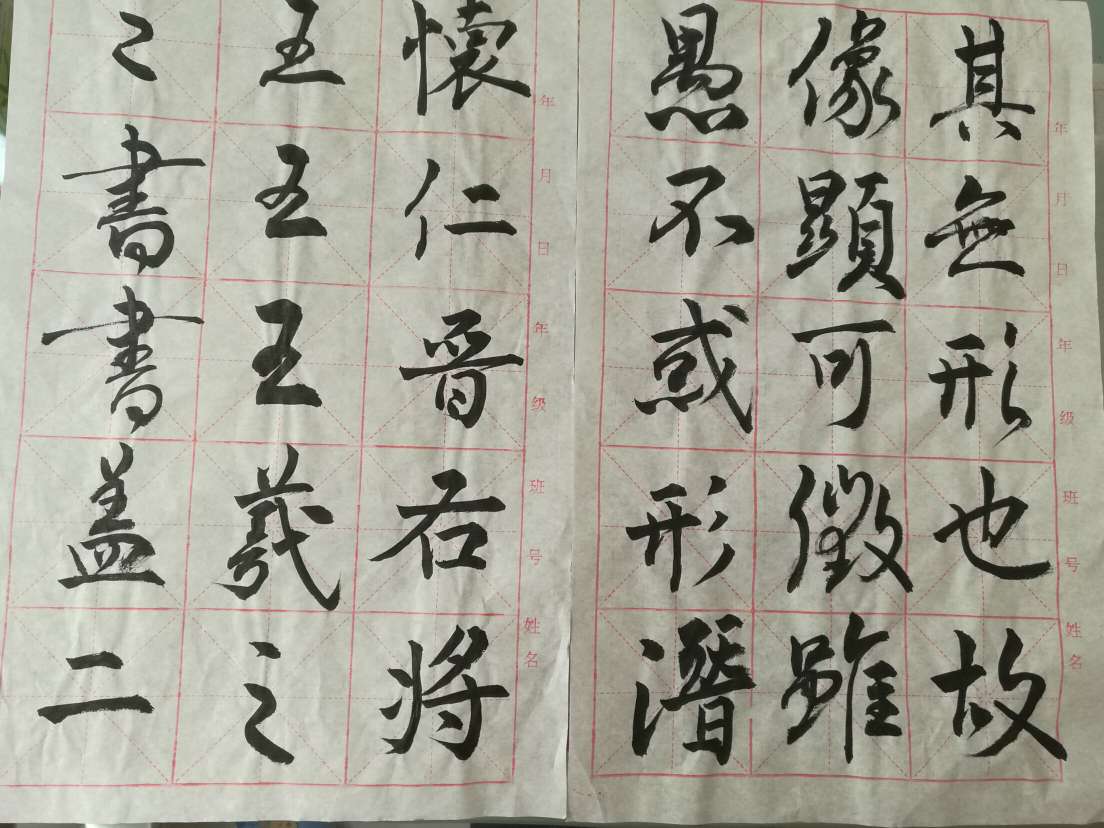 其無形也故
像顯可徵雖
愚不惑形潛
懷仁晉右將
五五王羲之
之書書蓋二
年月日年级班号姓名
年月日年级班号姓名